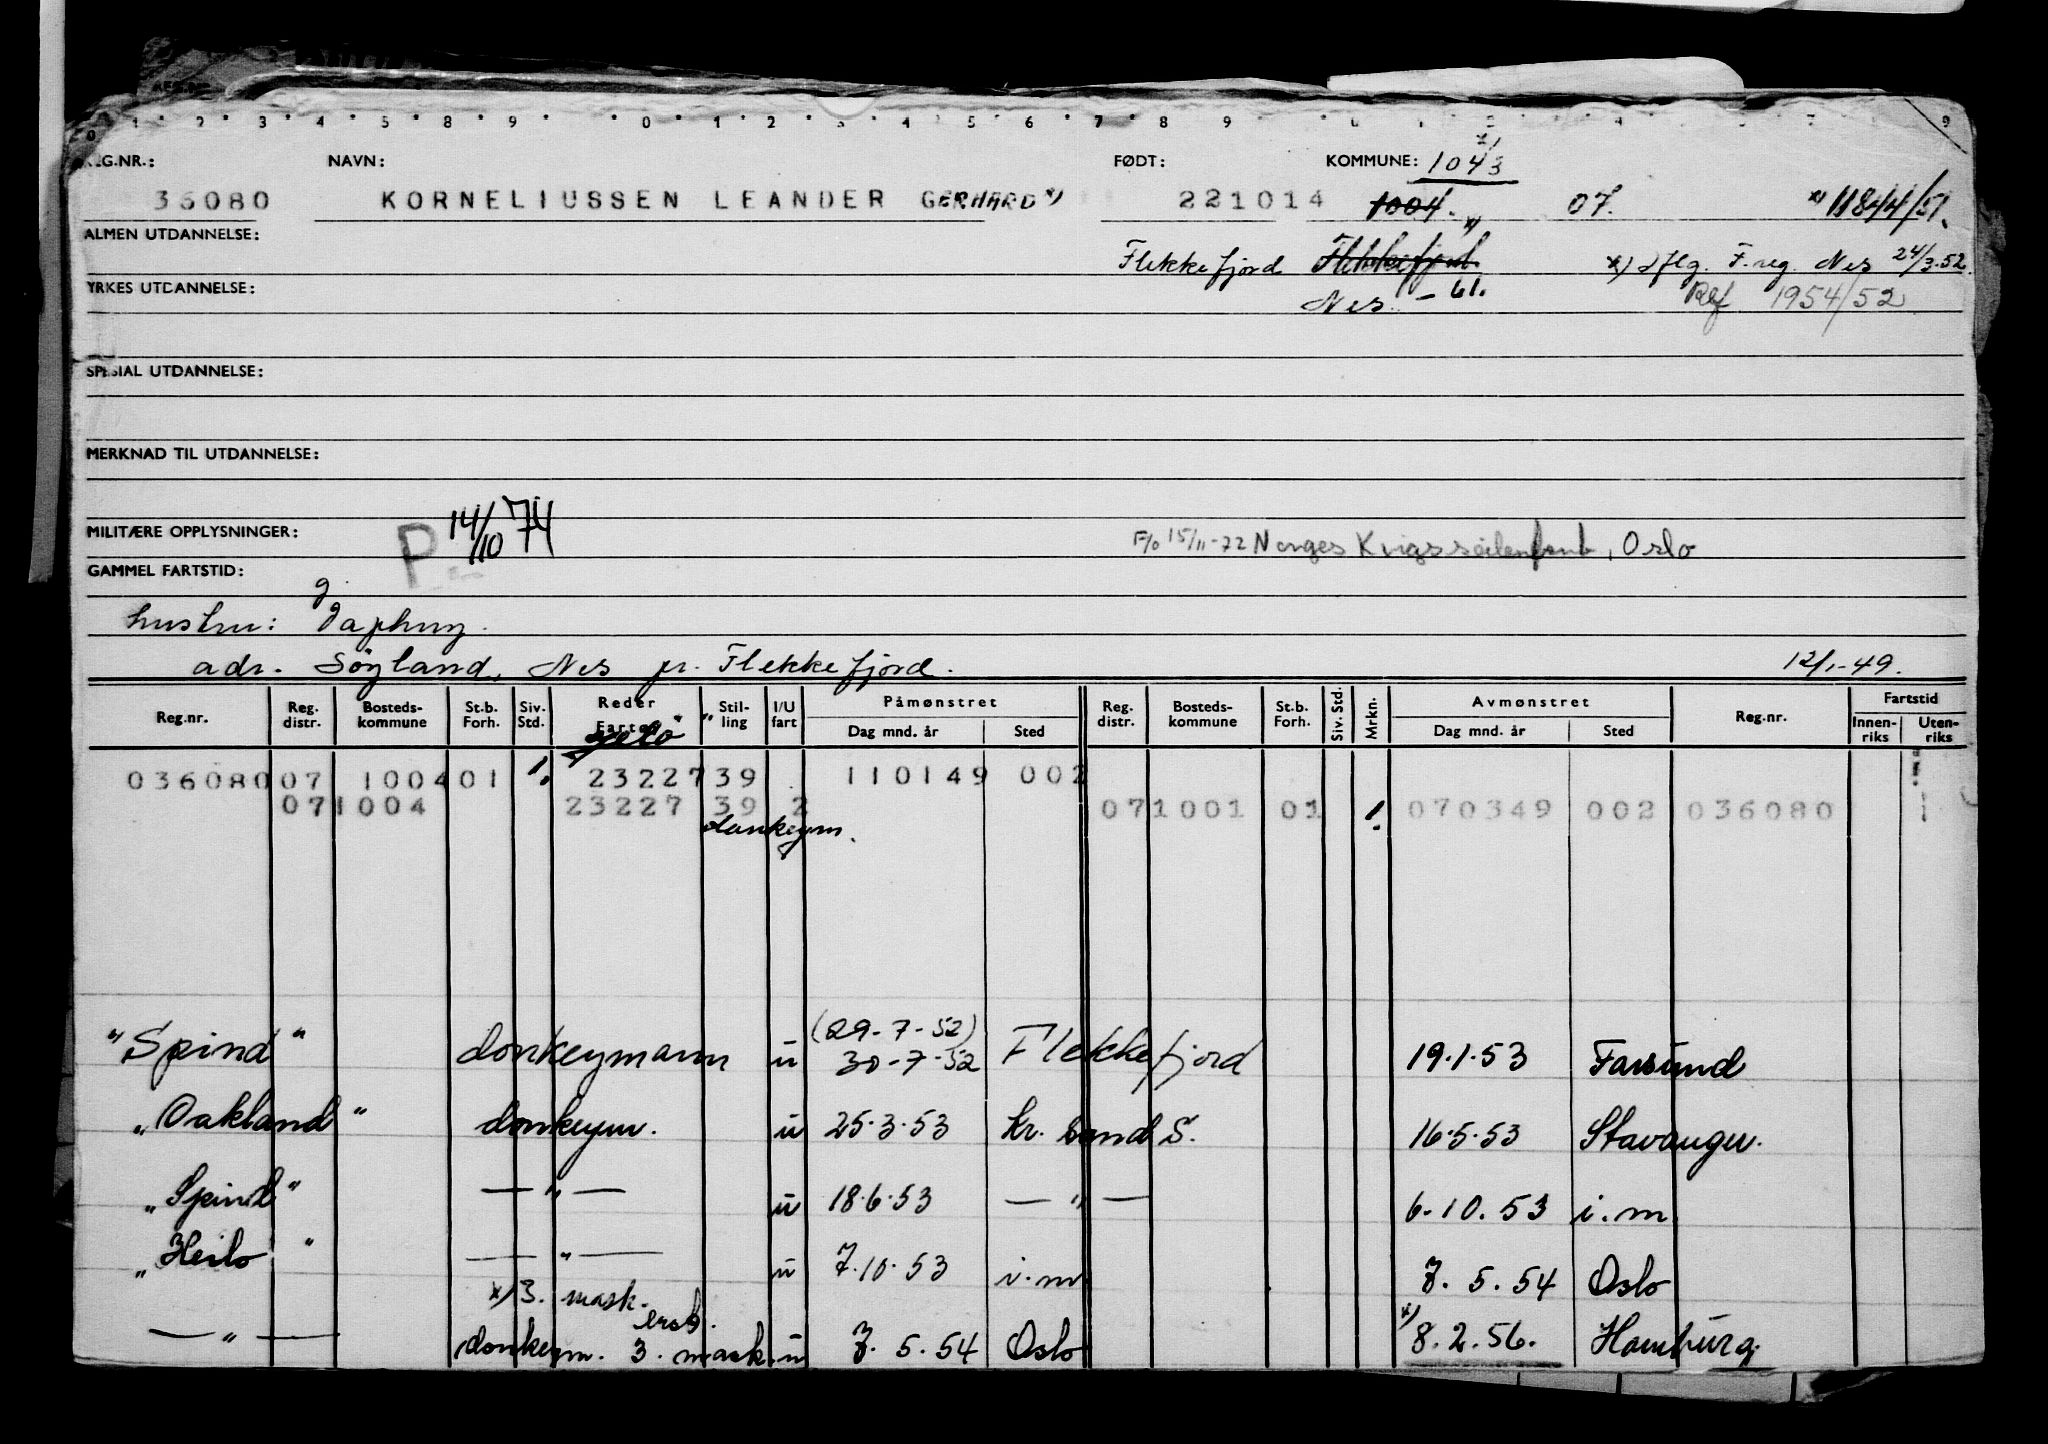 0 1 2 3 4 5 8 9 0 1 2 3 4 5 6 7 8 9
REG.NR.: NAVN: FØDT: KOMMUNE: 1043 x)
36080 KORNELIUSSEN LEANDER GERHARD x) 221014 1004. 07. x) 11844/51.
ALMEN UTDANNELSE:
Flekkefjord Flekkefjord x) x) Iflg. F.reg. Nes 24/3.52.
YRKES UTDANNELSE: Nes - 61. Ref 1954/52
SPESIAL UTDANNELSE:
MERKNAD TIL UTDANNELSE:
MILITÆRE OPPLYSNINGER: P 14/10 74 F/o 15/11-72 Norges Krigsseilerforb, Oslo
GAMMEL FARTSTID:
g.
hustru:
adr. Söyland, Nes pr. Flekkefjord. 12/1-49.
Reg.nr. Reg. distr. Bosteds-kommune St.b. Forh. Siv. Std. Reder Fartøy Stil-ling I/U fart Påmønstret Dag mnd. år Sted Reg. distr. Bosteds-kommune St.b. Forh. Siv. Std. Mrkn. Avmønstret Dag mnd. år Sted Reg.nr. Fartstid Innen-riks Uten-riks
036080 07 1004 01 1. 23227 39 110149 002
07 1004 23227 39 2 07 1001 01 1. 070349 002 036080
donkeym.
"Spind" donkeymann u (29-7-52) 30-7-52 Flekkefjord 19.1.53 Farsund
"Oakland" donkeym. u 25.3.53 Kr. sand S. 16.5.53 Stavanger.
"Spind" — " — u 18.6.53 — " — 6.10.53 i.m
"Heilo" — " — u 7.10.53 i.m 7.5.54 Oslo
x) 3. mask. ersb.
— " — donkeym. 3. mask. u 7.5.54 Oslo x) 8.2.56. Hamburg.